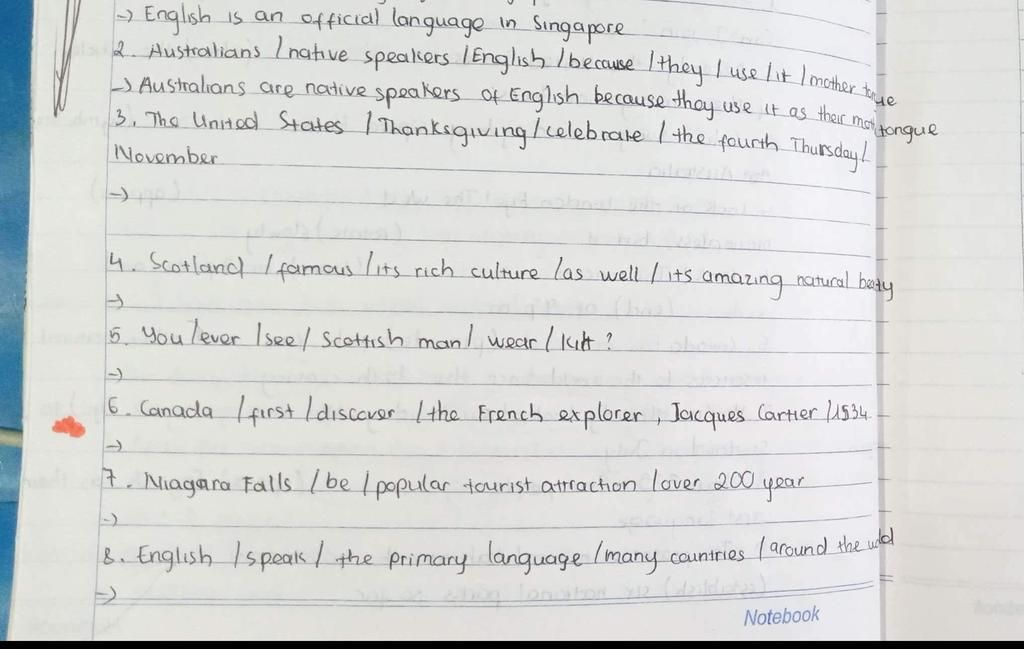 -> English is an official language in Singapore
2. Australians / native speakers / English / because / they / use / it / mother tongue
-> Australians are native speakers of English because they use it as their mother tongue
3. The United States / Thanksgiving / celebrate / the fourth Thursday /
November
->
4. Scotland / famous / its rich culture / as well / its amazing natural beauty
->
5. You / ever / see / Scottish man / wear / kilt ?
->
6. Canada / first / discover / the French explorer, Jacques Cartier / 1534
->
7. Niagara Falls / be / popular tourist attraction / over 200 year
->
8. English / speak / the primary language / many countries / around the world
->
Notebook